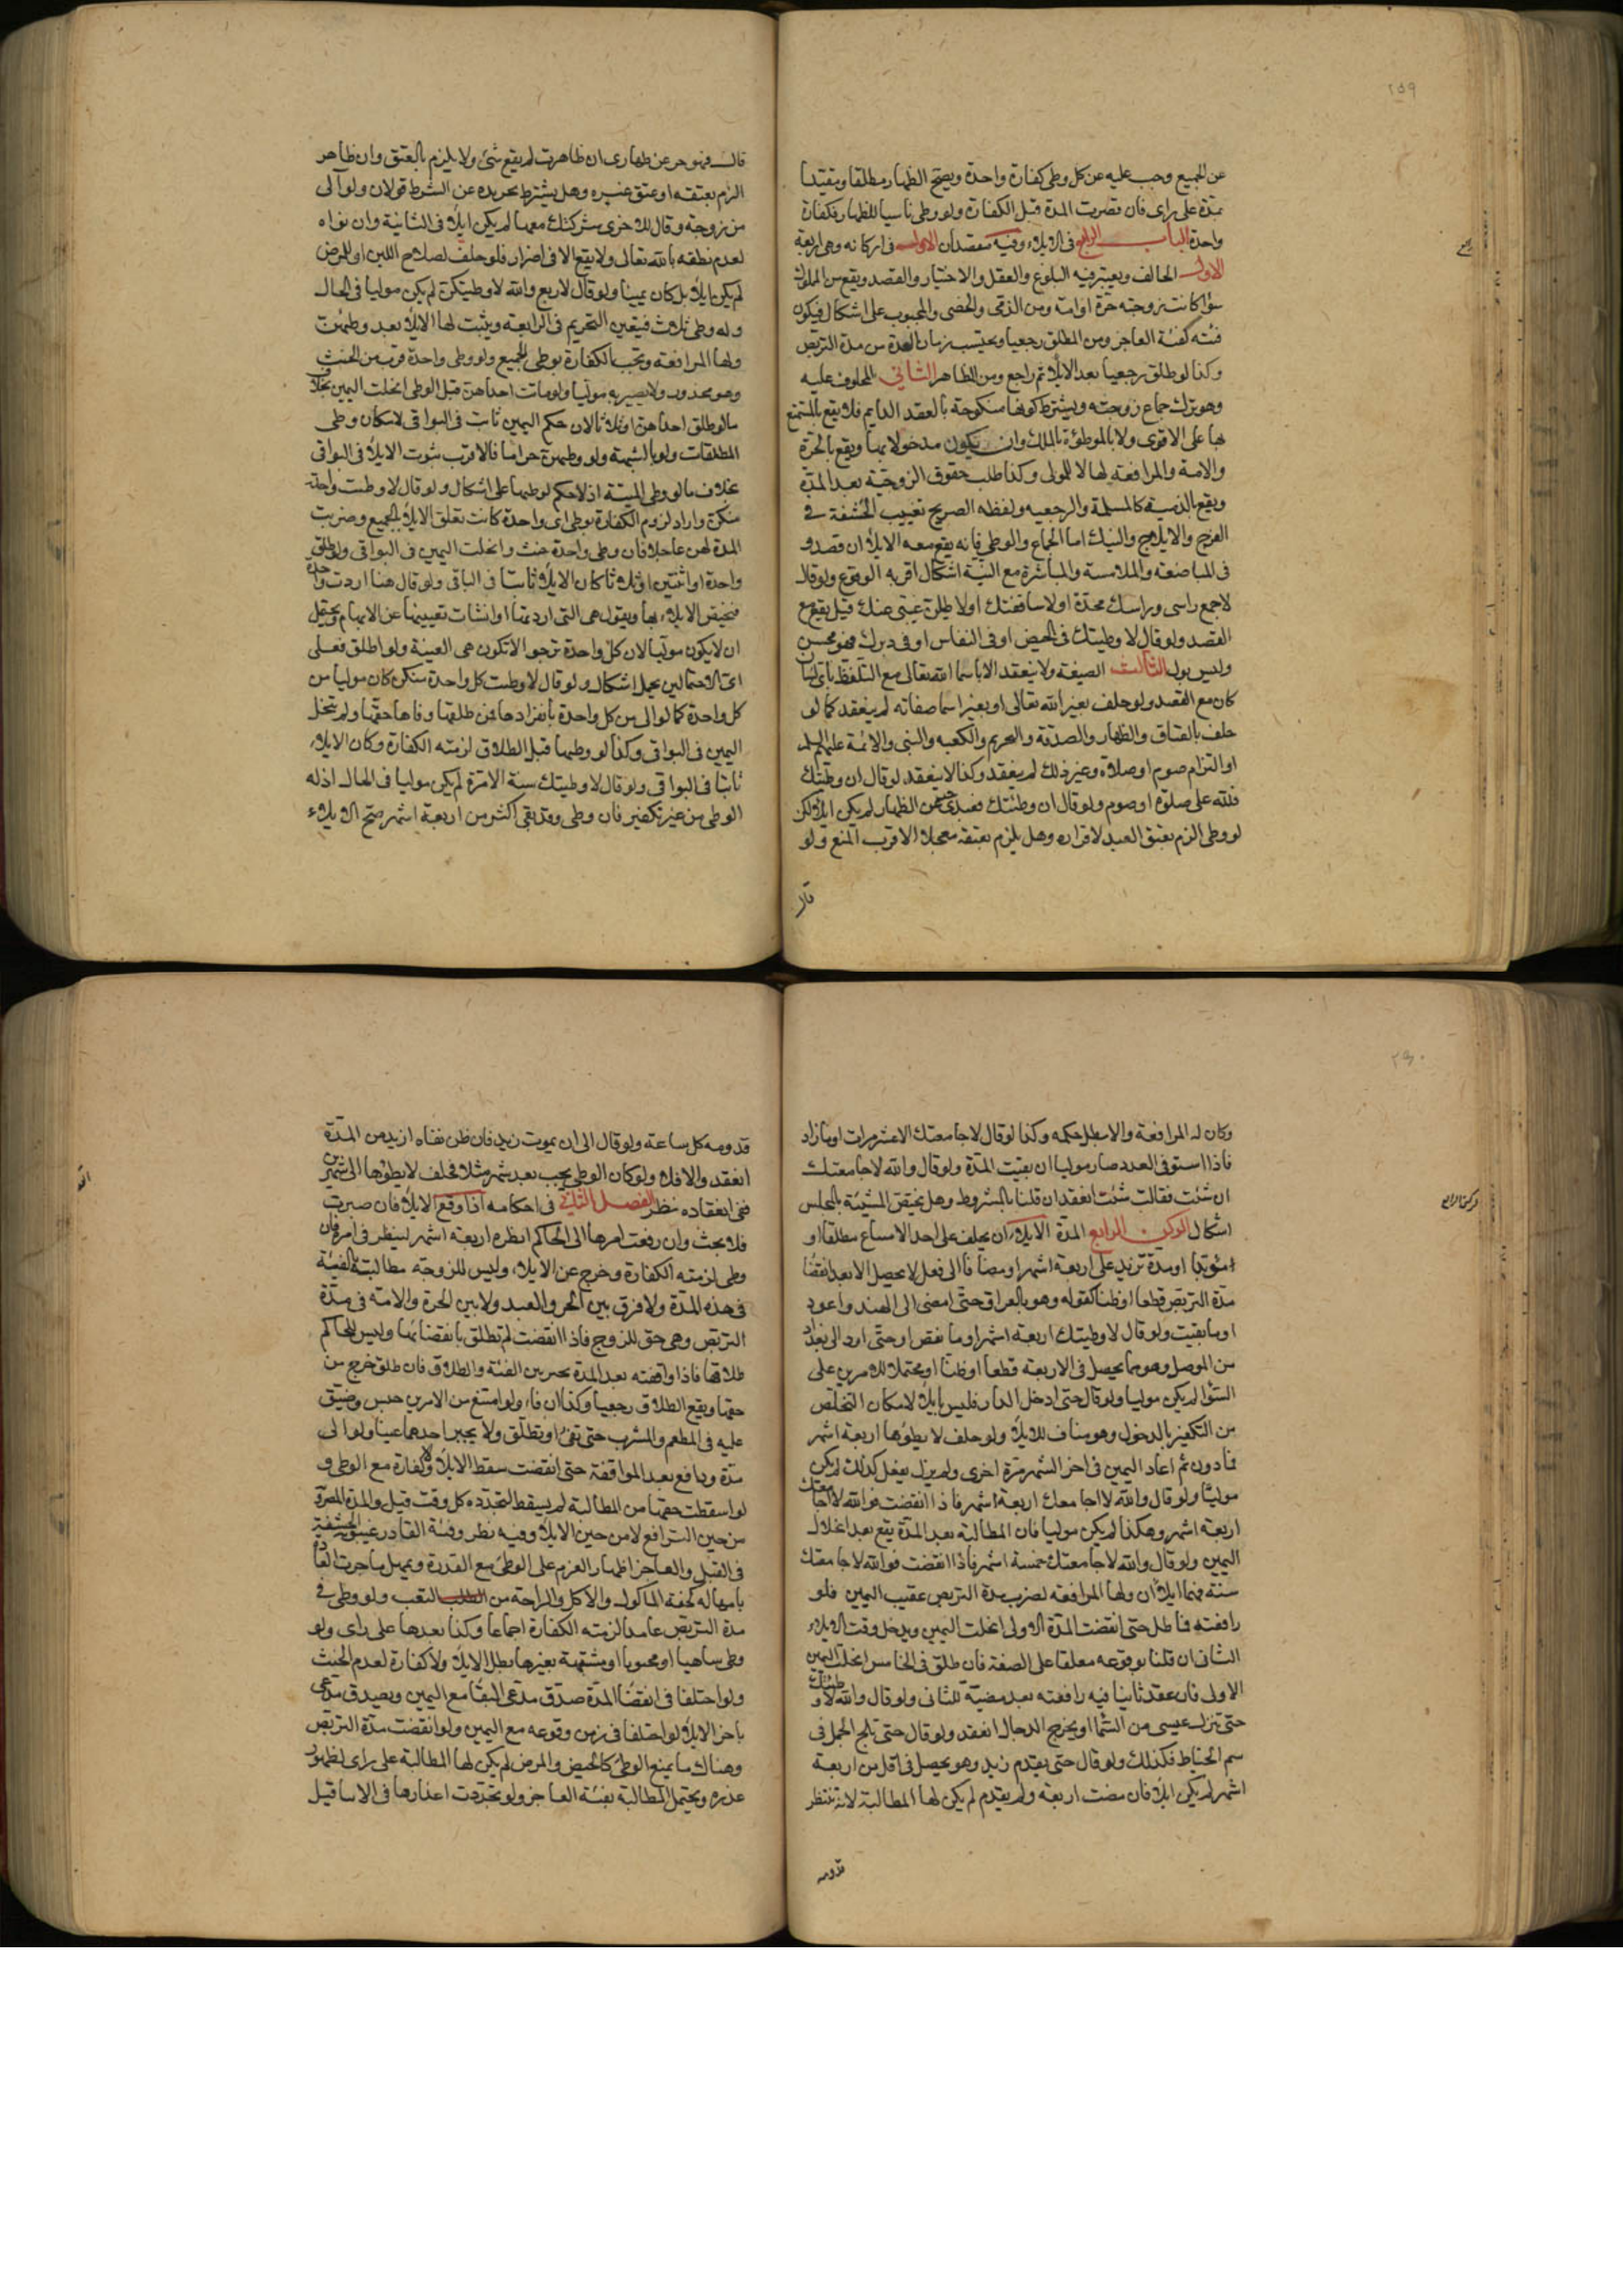 ٢٥٩
عن الجميع وجب عليه عن كل وطى كفارة واحدة ويصح الظهار مطلقا ومقيدا
بمدة على راى فان قصرت المدة قبل الكفارة ولو وطى ناسيا للظهار فكفارة
واحدة الباب الرابع فى الايلاء وفيه مقصدان الاول فى اركانه وهى اربعة
الاول الحالف ويعتبر فيه البلوغ والعقل والاختيار والقصد ويقع من المملوك
سواء كانت زوجته حرة او امة ومن الذمى والخصى والمجبوب على اشكال فيكون
فئته كفئة العاجز ومن المطلق رجعيا ويحتسب زمان العدة من مدة التربص
وكذا لو طلق رجعيا بعد الايلاء ثم راجع ومن المظاهر الثانى المحلوف عليه
وهو ترك جماع زوجته ويشترط كونها منكوحة بالعقد الدايم فلا يقع بالمتمتع
بها على الاقوى ولا بالموطوءة بالملك وان يكون مدخولا بها ويقع بالحرة
والامة والمرافعة لها لا للمولى وكذا طلب حقوق الزوجية بعد المدة
ويقع بالذمية كالمسلمة والرجعية ولفظه الصريح تغييب الحشفة فى
الفرج والايلاج والنيك اما الجماع والوطى فانه يقع معه الايلاء ان قصد و
فى المباضعة والملامسة والمباشرة مع النية اشكال اقربه الوقوع ولو قال
لا جمع راسى وراسك مخدة او لا ساقفتك او لاطيلن غيبتى عنك قيل يقع مع
القصد ولو قال لا وطيتك فى الحيض او فى النفاس او فى دبرك فهو محسن
وليس بمول الثالث الصيغة ولا ينعقد الا باسماء الله تعالى مع التلفظ باى لسان
كان مع القصد ولو حلف بغير الله تعالى او بغير اسما صفاته لم ينعقد كما لو
حلف بالعتاق والظهار والصدقة والتحريم والكعبة والنبى والائمة عليهم السلم
او التزام صوم او صلاة وغير ذلك لم ينعقد وكذا لا ينعقد لو قال ان وطيتك
فلله على صلوة او صوم ولو قال ان وطئتك فعبدى حر عن الظهار لم يكن ايلاء لكن
لو وطى الزم بعتق العبد لاقراره وهل يلزم بعتقه معجلا الاقرب المنع ولو
قال
قال فهو حر عن ظهارى ان ظاهرت لم يقع شئ ولا يلزم بالعتق وان ظاهر
الزم بعتقه او عتق غيره وهل يشترط تجريده عن الشرط قولان ولو آلى
من زوجة وقال للاخرى شركتك معها لم يكن ايلاء فى الثانية وان نواه
لعدم نطقه بالله تعالى ولا يقع الا فى اضرار فلو حلف لصلاح اللبن او المرض
لم يكن ايلاء بل كان يمينا ولو قال لاربع والله لا وطيتكن لم يكن موليا فى الحال
وله وطى ثلاث فيتعين التحريم فى الرابعة ويثبت لها الايلاء بعد وطئهن
ولها المرافعة وتجب الكفارة بوطى الجميع ولو وطى واحدة قرب من الحنث
وهو محذور ولا يصير به موليا ولو ماتت احداهن قبل الوطى انحلت اليمين بخلاف
ما لو طلق احداهن او ثلاثا لان حكم اليمين ثابت فى البواقى لامكان وطى
المطلقات ولو بالشبهة ولو وطيهن حراما فالاقرب ثبوت الايلاء فى البواقى
بخلاف ما لو وطى الميتة اذ لا حكم لوطيها على اشكال ولو قال لا وطيت واحدة
منكن واراد لزوم الكفارة بوطى اى واحدة كانت تعلق الايلاء بالجميع وضربت
المدة لهن عاجلا فان وطى واحدة حنث وانحلت اليمين فى البواقى ولو طلق
واحدة او اثنتين او ثلاثا كان الايلاء ثابتا فى الباقى ولو قال هنا اردت واحدة
فيختص الايلاء بها ويقول هى التى اردتها او انشات تعيينها عن الابهام ويحتمل
ان لا يكون موليا لان كل واحدة ترجو الا تكون هى المعينة ولو اطلق فعلى
اى الاحتمالين يحمل اشكال ولو قال لا وطيت كل واحدة منكن كان موليا من
كل واحدة كما لو الى من كل واحدة بانفرادها فمن طلقها وفاها حقها ولم تنحل
اليمين فى البواقى وكذا لو وطيها قبل الطلاق لزمته الكفارة وكان الايلاء
ثابتا فى البواقى ولو قال لا وطيتك سنة الا مرة لم يكن موليا فى الحال اذ له
الوطى من غير تكفير فان وطى وقد بقى اكثر من اربعة اشهر صح الايلاء
٢٦٠
وكان له المرافعة والا بطل حكمه وكذا لو قال لا جامعتك الا عشر مرات او ما زاد
فاذا استوفى العدد صار موليا ان بقيت المدة ولو قال والله لا جامعتك
ان شئت فقالت شئت انعقد ان قلنا بالشروط وهل يختص المشيئة بالمجلس
اشكال الركن الرابع المدة الايلاء ان يحلف على احد الامتناع مطلقا او
مؤبدا او مدة تزيد على اربعة اشهر او مضافا الى فعل لا يحصل الا بعد انقضا
مدة التربص قطعا او ظنا كقوله وهو بالعراق حتى امضى الى الهند واعود
او ما بقيت ولو قال لا وطيتك اربعة اشهر او ما نقص او حتى ارد الى بغداد
من الموصل وهو مما يحصل فى الاربعة قطعا او ظنا او محتملا للامرين على
السوا لم يكن موليا ولو قال حتى ادخل الدار فليس بايلاء لامكان التخلص
من التكفير بالدخول وهو مناف للايلاء ولو حلف لا يطؤها اربعة اشهر
فما دون ثم اعاد اليمين فى اخر الشهر مرة اخرى ولم يزل يفعل كذلك لم يكن
موليا ولو قال والله لا اجامعك اربعة اشهر فاذا انقضت فوالله لا جامعتك
اربعة اشهر وهكذا لم يكن موليا فان المطالبة بعد المدة يقع بعد انحلال
اليمين ولو قال والله لا جامعتك خمسة اشهر فاذا انقضت فوالله لا جامعتك
سنة فهما ايلاءان ولها المرافعة لضرب مدة التربص عقيب اليمين فلو
رافعته فماطل حتى انقضت المدة الاولى انحلت اليمين ويدخل وقت الايلاء
الثانى ان قلنا بوقوعه معلقا على الصفة فان طلق فى الخامس انحلت اليمين
الاولى فان عقد ثانيا فيه رافعته بعد مضيه للثانى ولو قال والله لا وطئتك
حتى ينزل عيسى من السما او يخرج الدجال انعقد ولو قال حتى يلج الجمل فى
سم الخياط فكذلك ولو قال حتى يقدم زيد وهو يحصل فى اقل من اربعة
اشهر لم يكن ايلاء فان مضت اربعة ولم يقدم لم يكن لها المطالبة لانه ينتظر
قدومه
قدومه كل ساعة ولو قال الى ان يموت زيد فان ظن بقاه ازيد من المدة
انعقد والا فلا ولو كان الوطى يجب بعد شهر مثلا فحلف لا يطؤها الى شهرين
ففى انعقاده نظر الفصل الثانى فى احكامه اذا وقع الايلاء فان صبرت
فلا بحث وان رفعت امرها الى الحاكم انظره اربعة اشهر لينظر فى امره فان
وطى لزمته الكفارة وخرج عن الايلاء وليس للزوجة مطالبته بالفئة
فى هذه المدة ولا فرق بين الحر والعبد ولا بين الحرة والامة فى مدة
التربص وهى حق للزوج فاذا انقضت لم تطلق بانقضائها وليس للحاكم
طلاقها فاذا واقفته بعد المدة تخير بين الفئة والطلاق فان طلق خرج من
حقها ويقع الطلاق رجعيا وكذا ان فاء ولو امتنع من الامرين حبس وضيق
عليه فى المطعم والمشرب حتى يفئ او يطلق ولا يجبر احدهما عينا ولو الى
مدة ودافع بعد المواقفة حتى انقضت سقط الايلاء ولا كفارة مع الوطى و
لو اسقطت حقها من المطالبة لم يسقط لتجدده كل وقت قيل والمدة المضروبة
من حين الترافع لا من حين الايلاء وفيه نظر وفئة القادر غيبوبة الحشفة
فى القبل والعاجز اظهار العزم على الوطئ مع القدرة ويمهل ما جرت العادة
بامهاله كخفة الماكول والاكل والراحة من التعب ولو وطى فى
مدة التربص عامدا لزمته الكفارة اجماعا وكذا بعدها على راى ولو
وطى ساهيا او مجنونا او مشتبهة بغيرها بطل الايلاء ولا كفارة لعدم الحنث
ولو اختلفا فى انقضا المدة صدق مدعى البقا مع اليمين ويصدق مدعى
تاخر الايلاء لو اختلفا فى زمن وقوعه مع اليمين ولو انقضت مدة التربص
وهناك ما يمنع الوطئ كالحيض والمرض لم يكن لها المطالبة على راى لظهور
عذره ويحتمل المطالبة بفئة العاجز ولو تجددت اعذارها فى الاثنا قيل